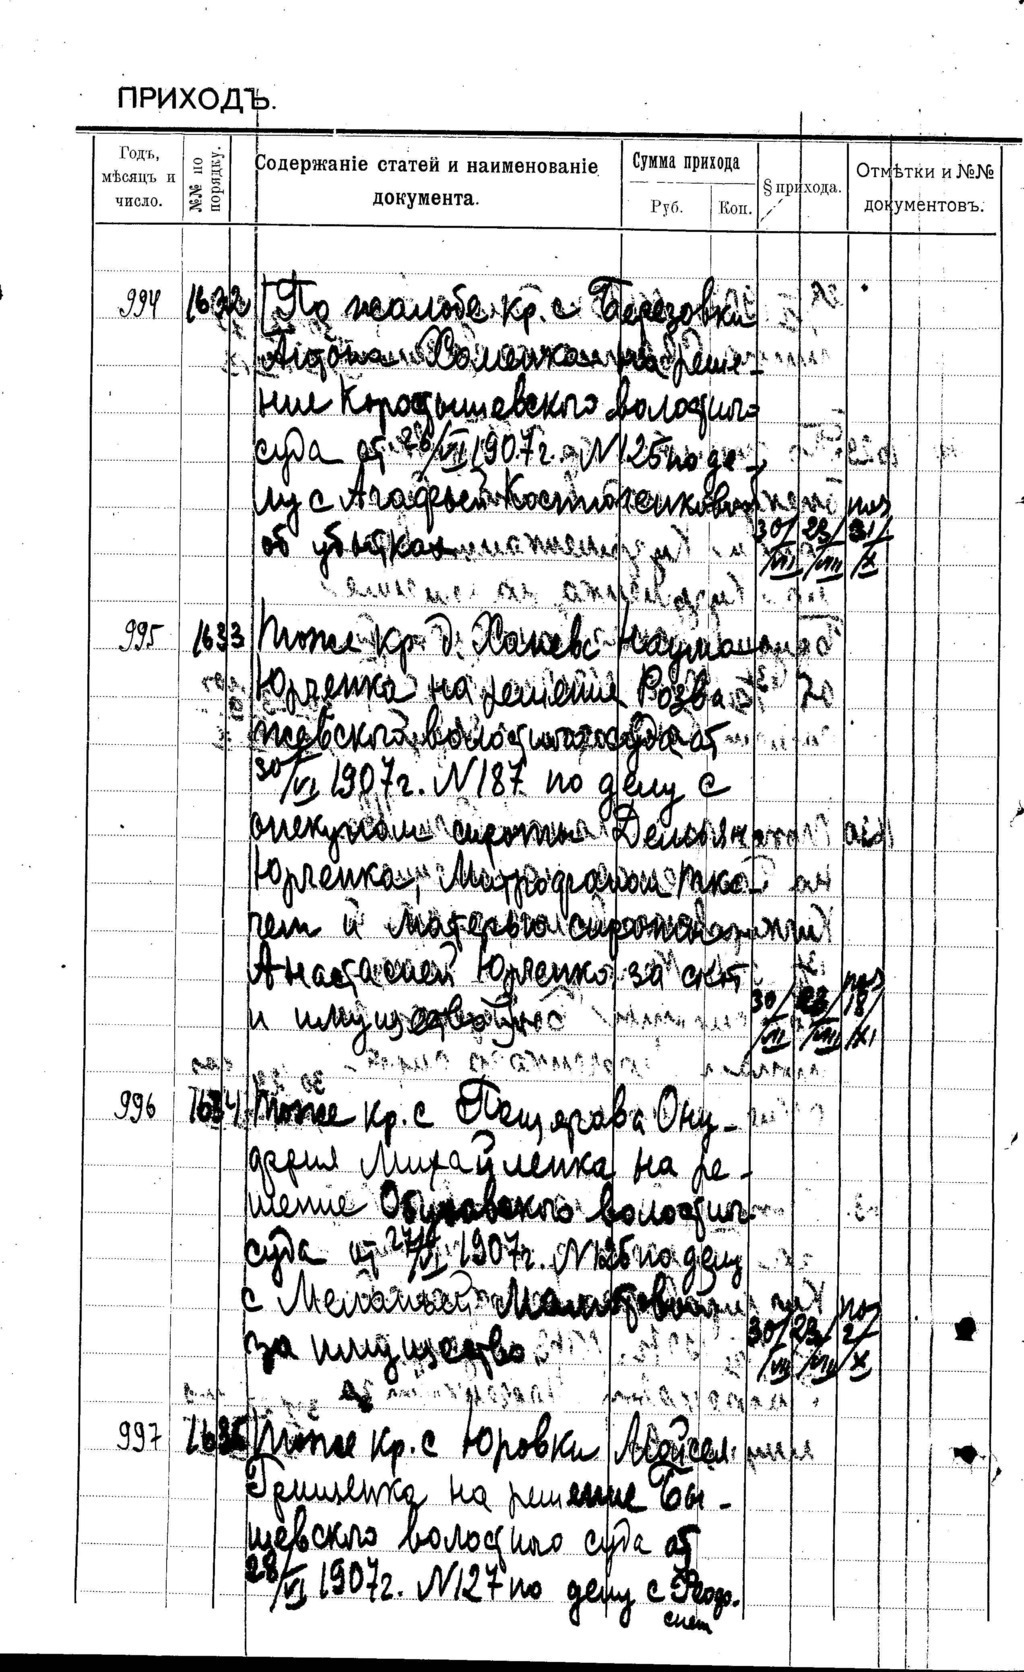 ПРИХОДЪ.
Годъ, мѣсяцъ и число.
№№ по порядку.
Содержаніе статей и наименованіе документа.
Сумма прихода
Руб.
Коп.
§ прихода.
Отмѣтки и №№ документовъ.
994 1632 По жалобе кр. с Березовки
Антона Хоменка на реше-
ние Коростышевского волостного
суда от 26/VI 1907г. N 125 по де-
лу с Агафьей Костюченковой
об убытках 30/VII 23/VIII 31/X
995 1633 Тоже кр. д. Ханевс Наума
Юрченка на решение Розва
жевского волостного суда от
30/VI 1907г. N 187 по делу с
опекуном сироты Демьяна
Юрченка, Митрофаном Тка-
чем и матерью сироты
Анастасией Юрченко за скот
и имущество 30/VII 23/VIII 18/XI
996 1634 Тоже кр. с Ону-
фрия Михайленка на ре-
шение Обуховского волостного
суда от 1907г. N 125 по делу
с Меланьей
за имущество 30/VII 23/VIII 2/X
997 1635 Тоже кр. с Юровки Мойсея
Грищенка на решение Бы-
шевского волостного суда от
28/VI 1907г. N 127 по делу с Феодо-
сием